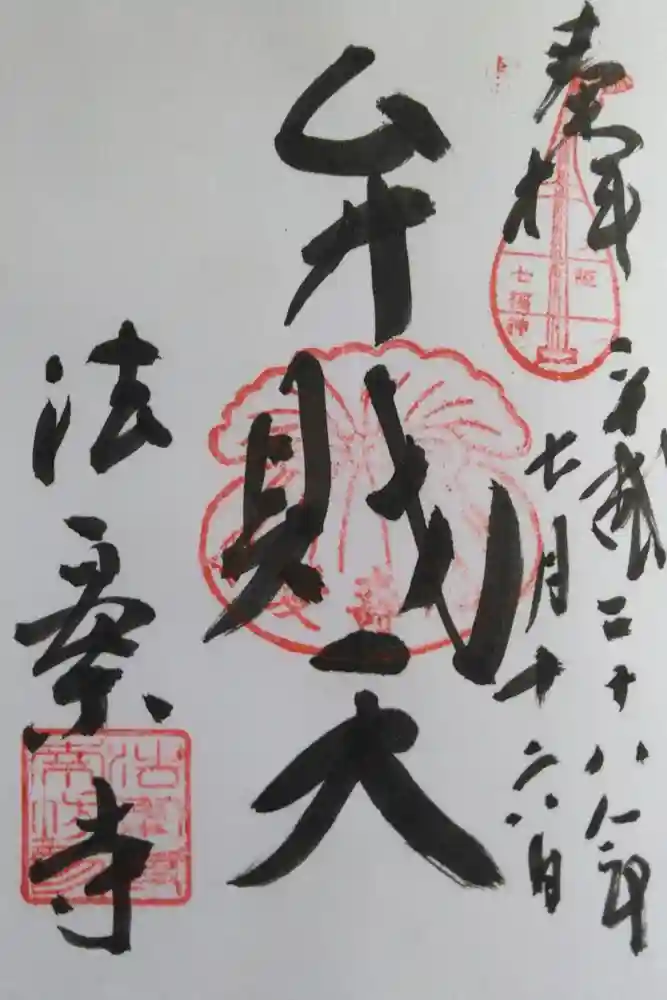 奉拝
平成二十八年
七月十六日
七福神
弁財天
法楽寺